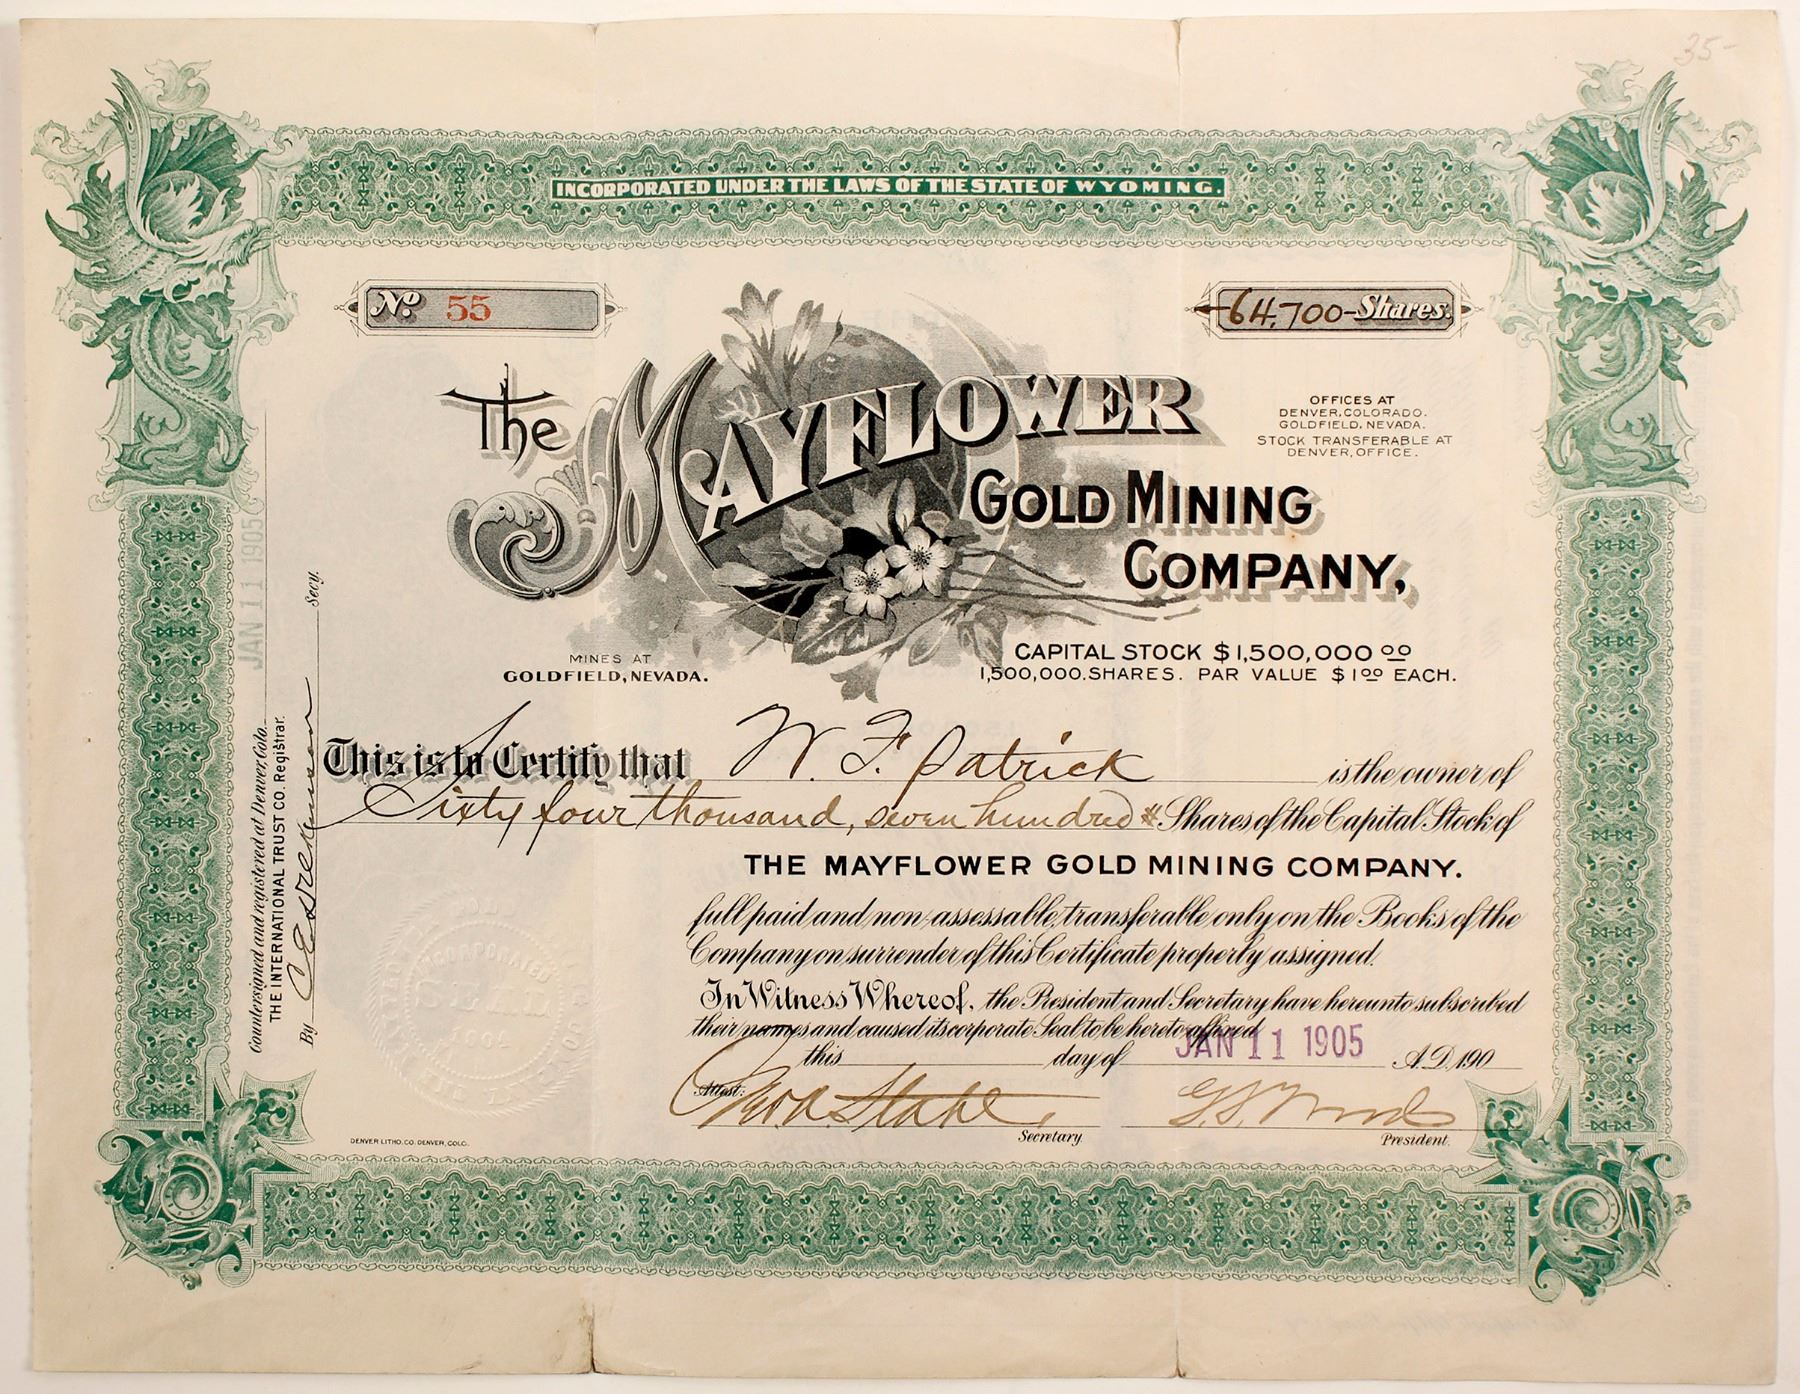 35-
INCORPORATED UNDER THE LAWS OF THE STATE OF WYOMING.
No. 55
64,700-Shares.
The MAYFLOWER
GOLD MINING
COMPANY,
OFFICES AT
DENVER, COLORADO.
GOLDFIELD, NEVADA.
STOCK TRANSFERABLE AT
DENVER, OFFICE.
MINES AT
GOLDFIELD, NEVADA.
CAPITAL STOCK $1,500,000 00
1,500,000. SHARES. PAR VALUE $1 00 EACH.
This is to Certify that W. F. Patrick is the owner of
Sixty four thousand, seven hundred Shares of the Capital Stock of
THE MAYFLOWER GOLD MINING COMPANY.
full paid and non-assessable, transferable only on the Books of the
Company on surrender of this Certificate properly assigned.
In Witness Whereof, the President and Secretary have hereunto subscribed
their names and caused its corporate Seal to be hereto affixed
this day of JAN 11 1905 A.D. 190
Attest:
Secretary.
G. S. Wood
President.
DENVER LITHO. CO. DENVER, COLO.
JAN 11 1905
Countersigned and registered at Denver, Colo.
THE INTERNATIONAL TRUST CO. Registrar.
By Secy.
INCORPORATED
SEAL